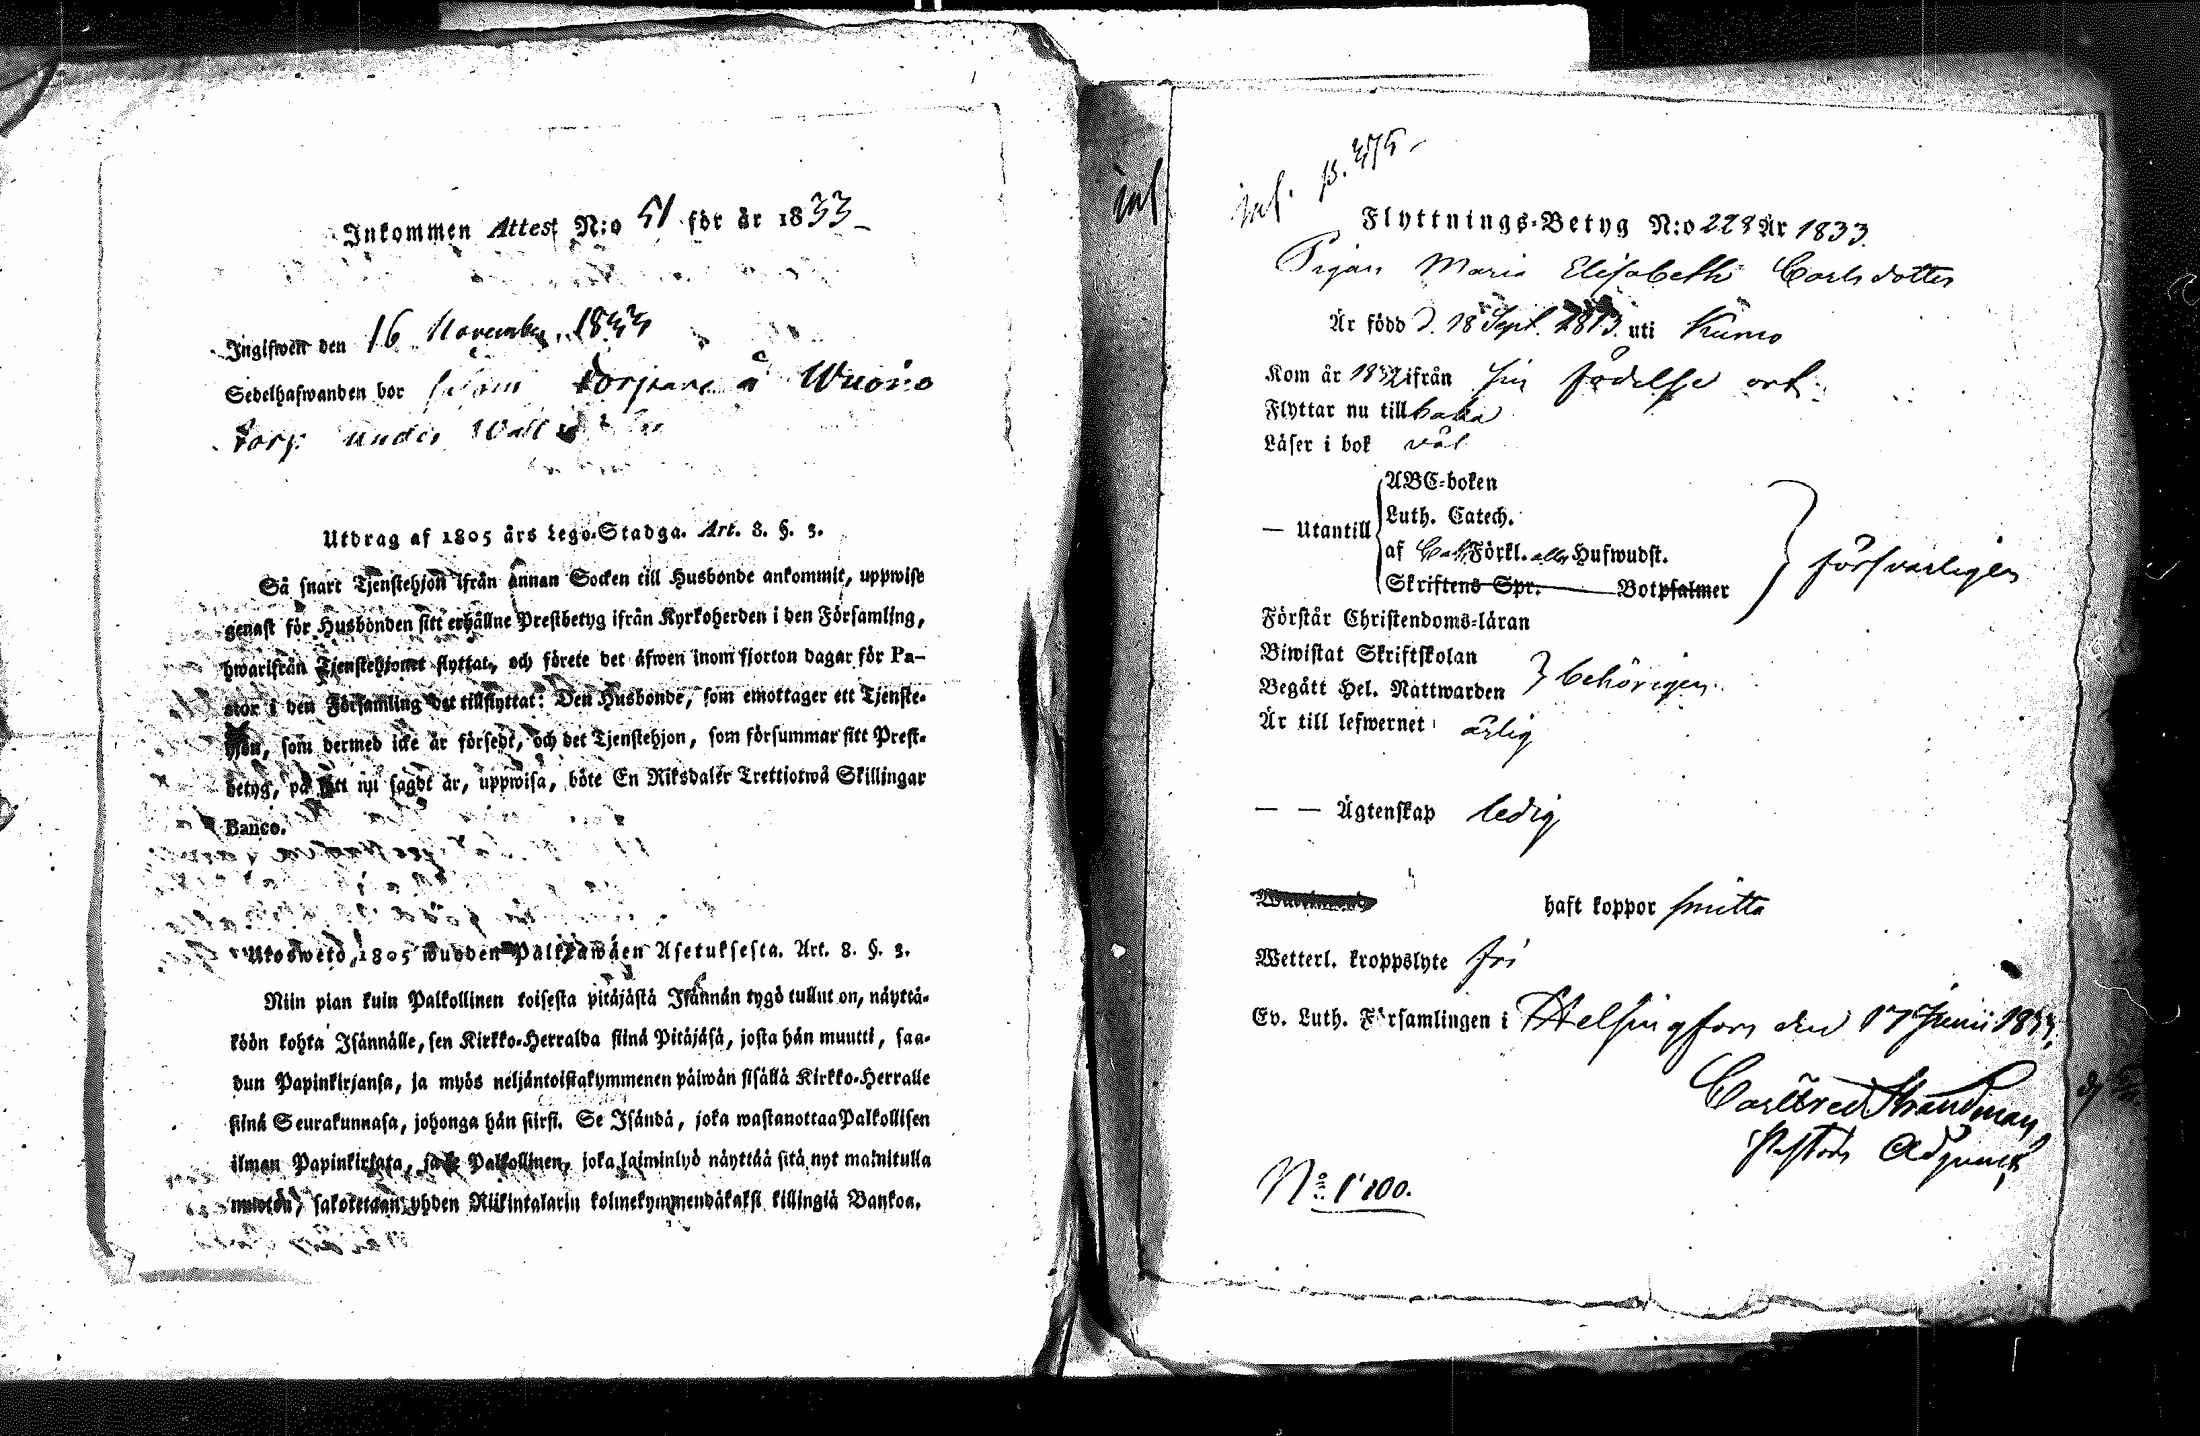 Inkommen Attest N:o 51 för år 1833
Ingifwen den 16 November 1833
Sedelhafwanden bor som torpare å Wuorio
torp under
Utdrag af 1805 års Lego-Stadga. Art. 8. §. 3.
Så snart Tjenstehjon ifrån annan Socken till Husbonde ankommit, uppwise
genast för Husbonden sitt erhållne Prestbetyg ifrån Kyrkoherden i den Församling,
hwarifrån Tjenstehjonet flyttat, och förete det äfwen inom fjorton dagar för Pa-
stor i den Församling det tillflyttat: Den Husbonde, som emottager ett Tjenste-
hjon, som dermed icke är försedt, och det Tjenstehjon, som försummar sitt Prest-
betyg, på sätt nu sagdt är, uppwisa, böte En Riksdaler Trettiotwå Skillingar
Banco.
Ulosweto 1805 wuoden Palkkawäen Asetuksesta. Art. 8. §. 3.
Niin pian kuin Palkollinen toisesta pitäjästä Isännän tygö tullut on, näyttä-
köön kohta Isännälle, sen Kirkko-Herralda siinä Pitäjäsä, josta hän muutti, saa-
dun Papinkirjansa, ja myös neljäntoistakymmenen päiwän sisällä Kirkko-Herralle
siinä Seurakunnasa, johonga hän siirsi. Se Isändä, joka wastanottaa Palkollisen
ilman Papinkirjata, ja se Palkollinen, joka laiminlyö näyttää sitä nyt mainitulla
muotoa, sakoketaan yhden Riikintalarin kolmekymmendäkaksi killingiä Bankoa.
inf. p. 375
inf
Flyttnings-Betyg N:o 228 År 1833.
Pigan Maria Elisabeth Carlsdotter
Är född d. 18 Sept. 1813. uti Kumo
Kom år 1832 ifrån sin födelse ort.
Flyttar nu till baka
Läser i bok väl
— Utantill
ABC-boken
Luth. Catech.
af Förkl. Hufwudst.
Skriftens Spr. Botpsalmer
försvarligen
Förstår Christendoms-läran
Biwistat Skriftskolan
Begått Hel. Nattwarden
behörigen
Är till lefwernet ärlig
— — Ägtenskap ledig
haft koppor smitta
Wetterl. kroppslyte fri
Ev. Luth. Församlingen i Helsingfors den 17 Junii 1833.
Carl Fred Strandman
Pastors Adjunct
No 1100.